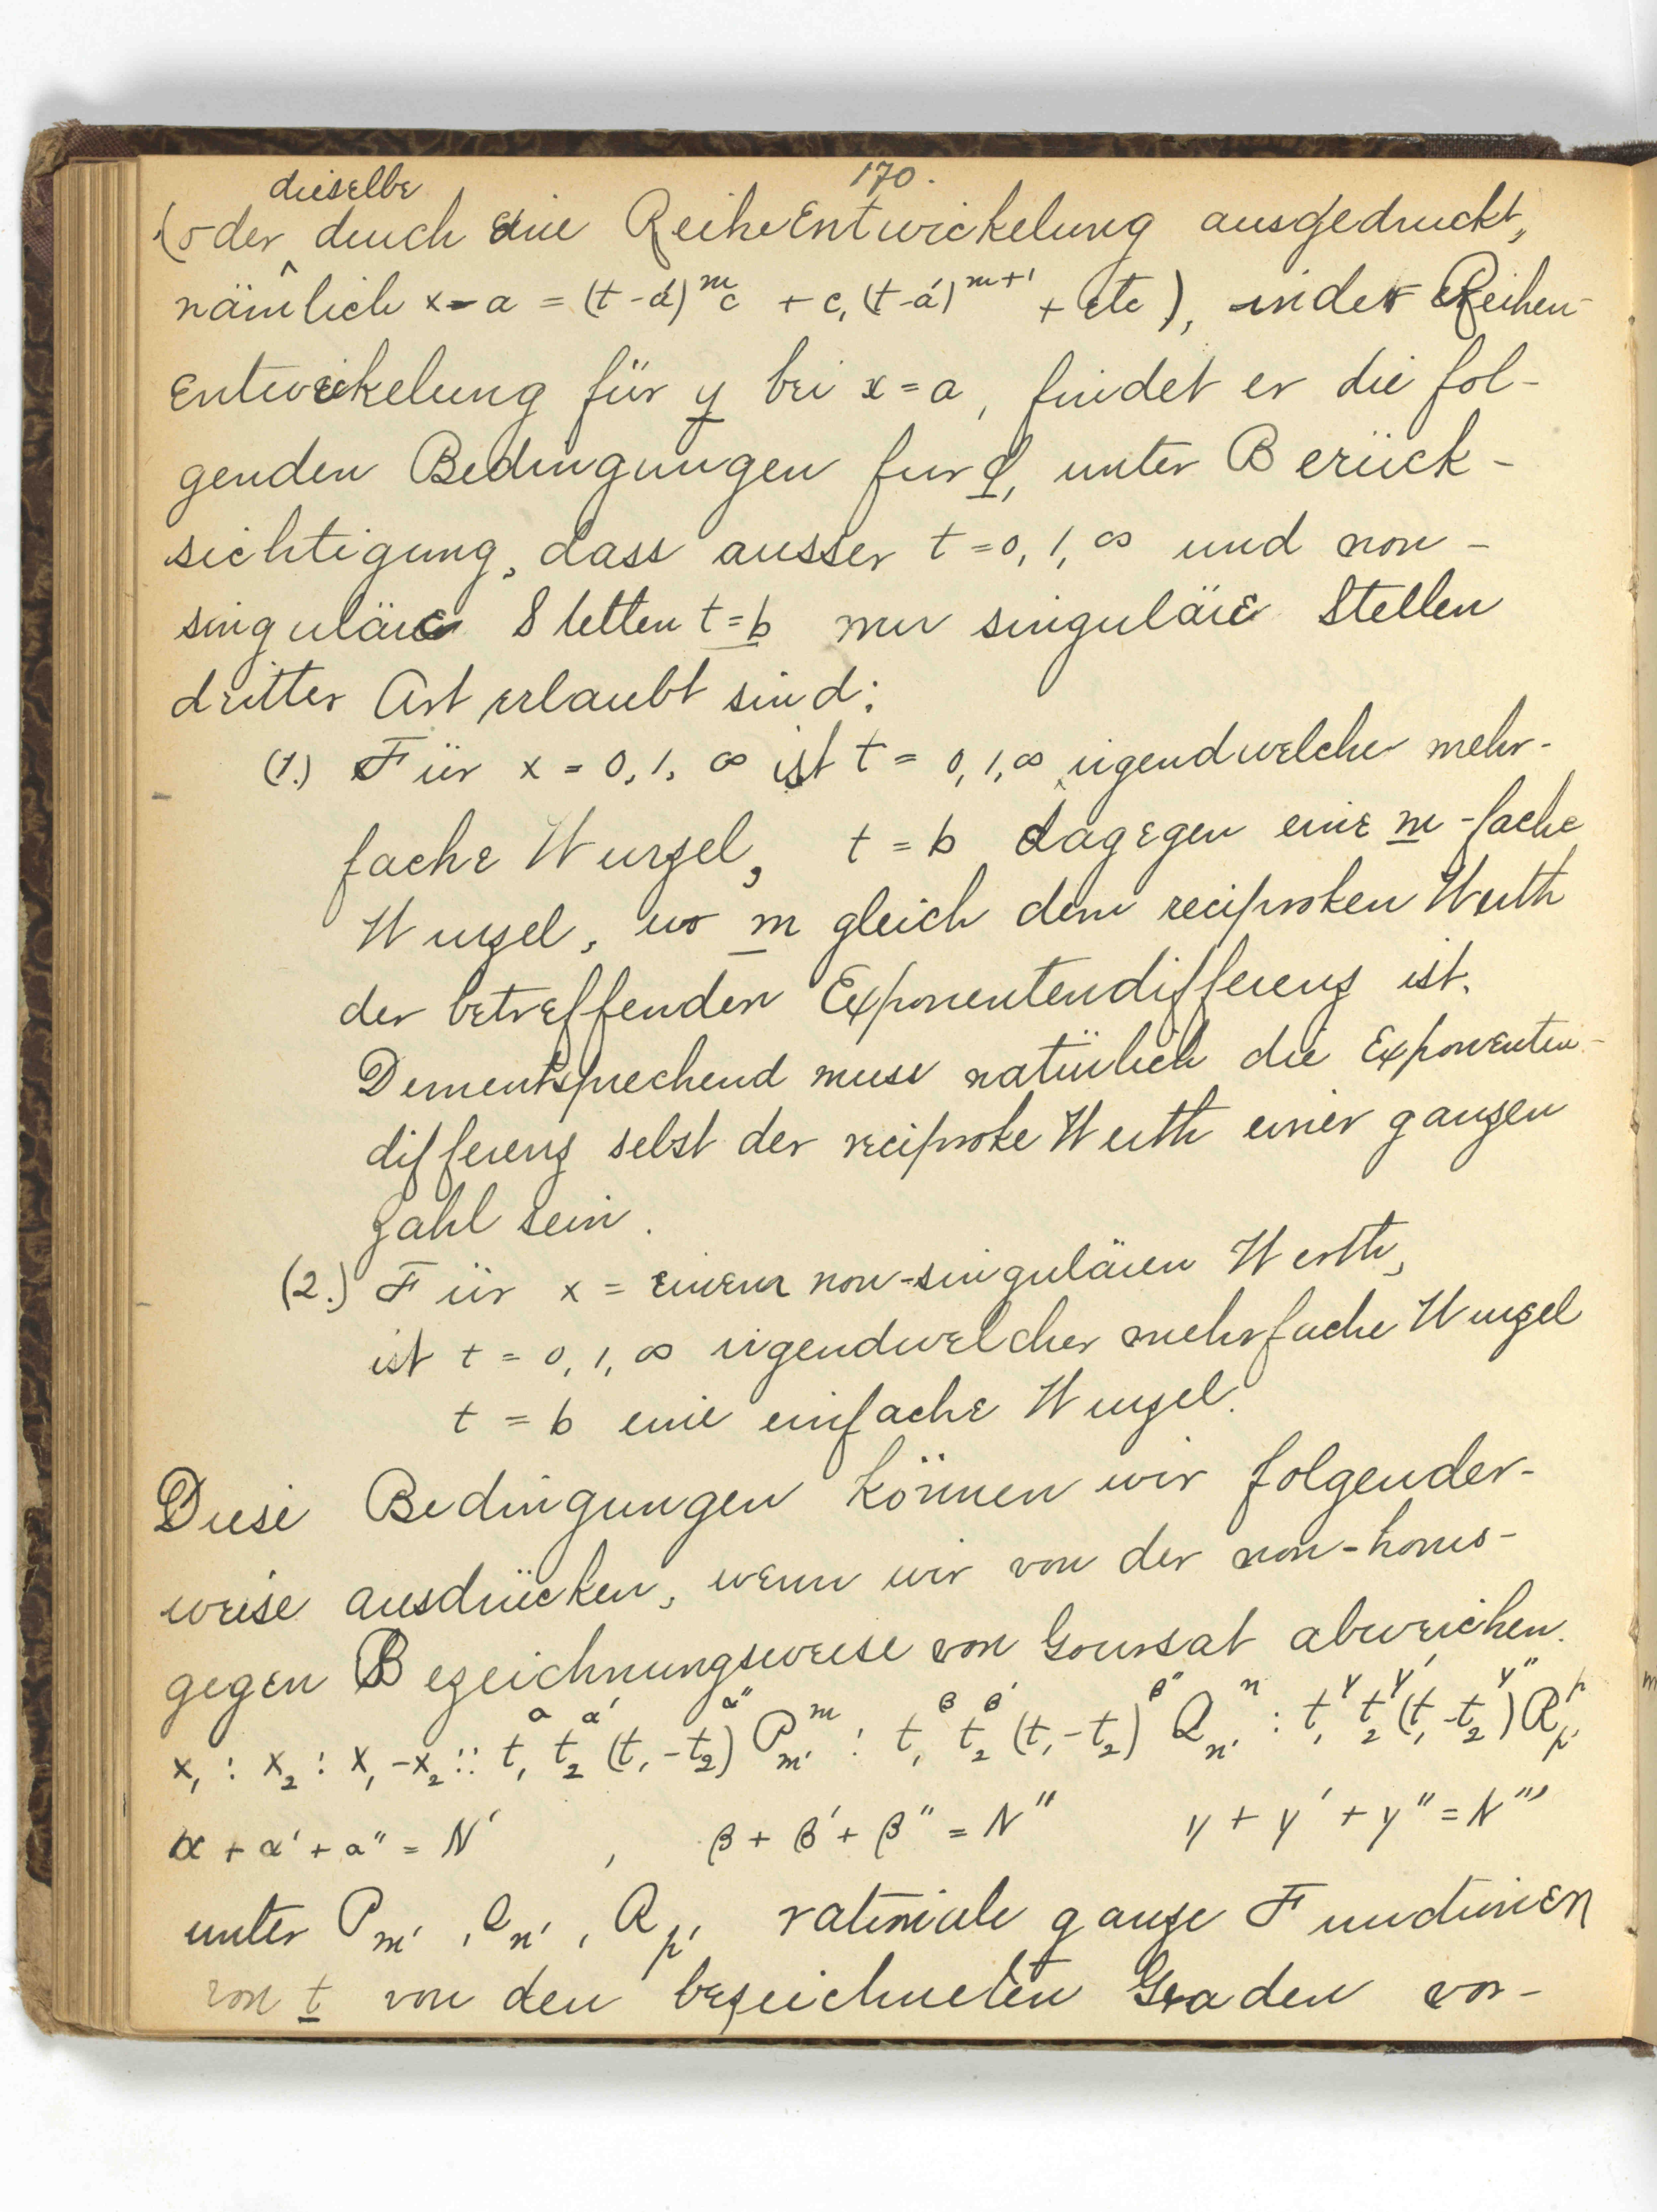 170.
dieselbe
(oder durch eine Reihe Entwickelung ausgedruckt,
nämlich x-a = (t-a')^m c + c, (t-a')^{m+1} + etc), in der Reihen-
entwickelung für y bei x=a, findet er die fol-
genden Bedingungen fur φ, unter Berück-
sichtigung, dass ausser t=0, 1, ∞ und non-
singuläre Stellen t=b nur singuläre Stellen
dritter Art erlaubt sind:
(1.) Für x = 0, 1, ∞ ist t = 0, 1, ∞ irgendwelcher mehr-
fache Wurzel, t = b dagegen eine m-fache
Wurzel, wo m gleich dem reciproken Werth
der betreffenden Exponentendifferenz ist.
Dementsprechend muss natürlich die Exponenten-
differenz selbst der reciproke Werth einer ganzen
Zahl sein.
(2.) Für x = einem non-singulären Werth,
ist t = 0, 1, ∞ irgendwelcher mehrfache Wurzel
t = b eine einfache Wurzel.
Diese Bedingungen können wir folgender-
weise ausdrücken, wenn wir von der non-homo-
gegen Bezeichnungsweise von Goursat abweichen.
x₁ : x₂ : x₁-x₂ :: t₁^α t₂^α' (t₁-t₂)^α'' P_m'^m : t₁^β t₂^β' (t₁-t₂)^β'' Q_n'^n : t₁^γ t₂^γ' (t₁-t₂)^γ'' R_p'^p
α + α' + α'' = N' , β + β' + β'' = N'' γ + γ' + γ'' = N'''
unter P_m', Q_n', R_p' rationale ganze Functionen
von t von den bezeichneten Graden vor-